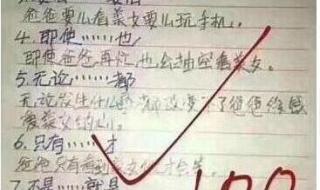 爸爸要么看美女要么玩手机。
4.即使……也
即使爸爸再忙,也会抽空看美女。
5.无论……都
无论发生什么都改变不了爸爸
爱美女的心。
6.只有……才
爸爸只有看到美女 才会笑。
7.不是……就是
100